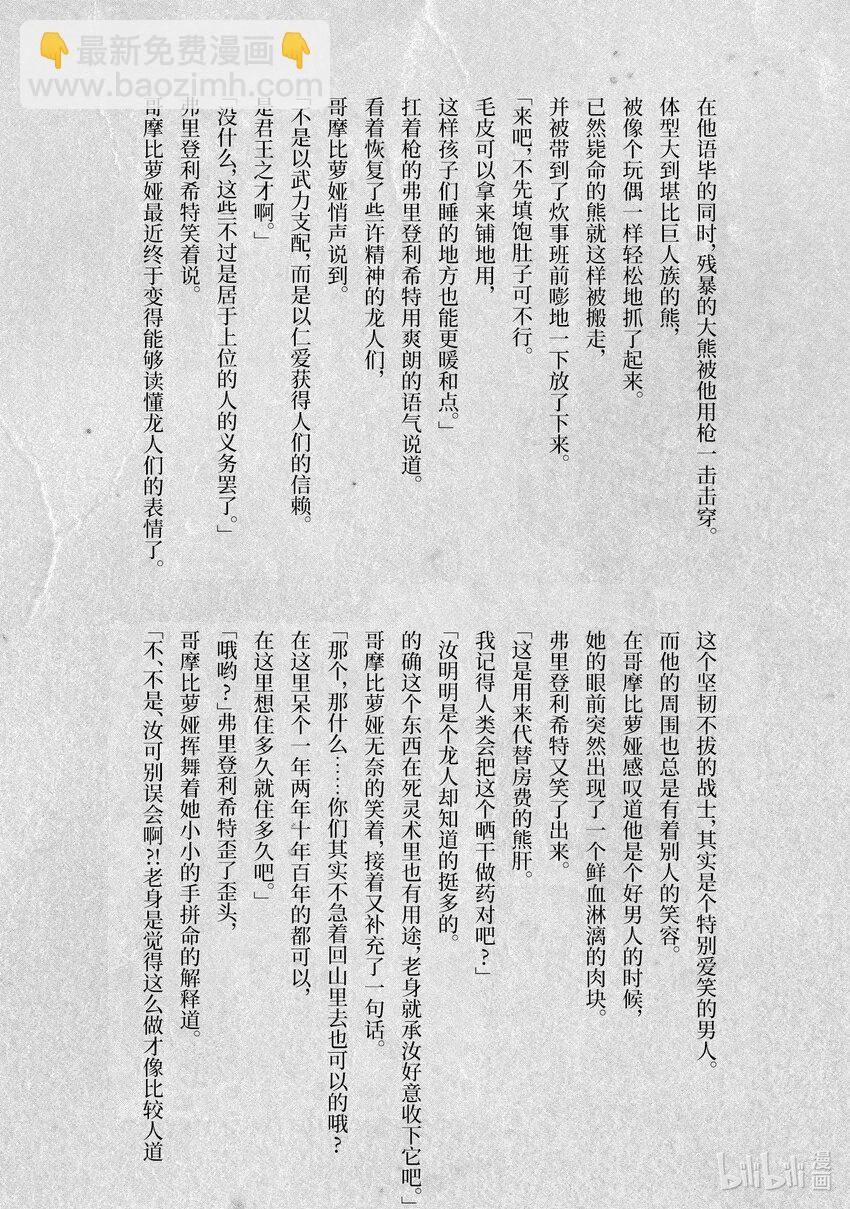 最新免费漫画
www.baozimh.com
在他语毕的同时，残暴的大熊被他用枪一击击穿。
体型大到堪比巨人族的熊，
被像个玩偶一样轻松地抓了起来。
已然毙命的熊就这样被搬走，
并被带到了炊事班前嘭地一下放了下来。
「来吧，不先填饱肚子可不行。
毛皮可以拿来铺地用，
这样孩子们睡的地方也能更暖和点。」
扛着枪的弗里登利希特用爽朗的语气说道。
看着恢复了些许精神的龙人们，
哥摩比萝娅悄声说到。
「不是以武力支配，而是以仁爱获得人们的信赖。
是君王之才啊。」
「没什么，这些不过是居于上位的人的义务罢了。」
弗里登利希特笑着说。
哥摩比萝娅最近终于变得能够读懂龙人们的表情了。
这个坚韧不拔的战士，其实是个特别爱笑的男人。
而他的周围也总是有着别人的笑容。
在哥摩比萝娅感叹道他是个好男人的时候，
她的眼前突然出现了一个鲜血淋漓的肉块。
弗里登利希特又笑了出来。
「这是用来代替房费的熊肝。
我记得人类会把这个晒干做药对吧？」
「汝明明是个龙人却知道的挺多的。
的确这个东西在死灵术里也有用途，老身就承汝好意收下它吧。」
哥摩比萝娅无奈的笑着，接着又补充了一句话。
「那个，那什么……你们其实不急着回山里去也可以的哦？
在这里呆个一年两年十年百年的都可以，
在这里想住多久就住多久吧。」
「哦哟？」弗里登利希特歪了歪头，
哥摩比萝娅挥舞着她小小的手拼命的解释道。
「不、不是、汝可别误会啊？！老身是觉得这么做才像比较人道
bilibili漫画